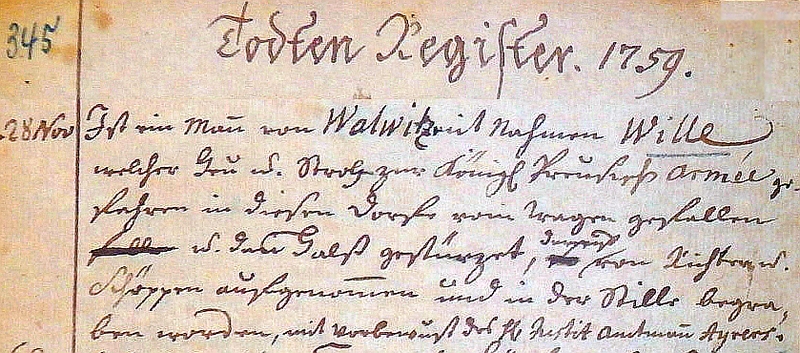 345
Todten Register. 1759.
28 Nov Ist ein Mañ von Walwitz mit Nahmen Wille
welcher Heu u. Stroh zur Königl Preusisch Armée ge-
fahren in diesem Dorfe vom Wagen gefallen
u. den Halß gestürzet, von Richter u.
Schöppen aufgenommen und in der Stille begra-
ben worden, mit vorbewust des H. Justit Amtmañ Ayrers.